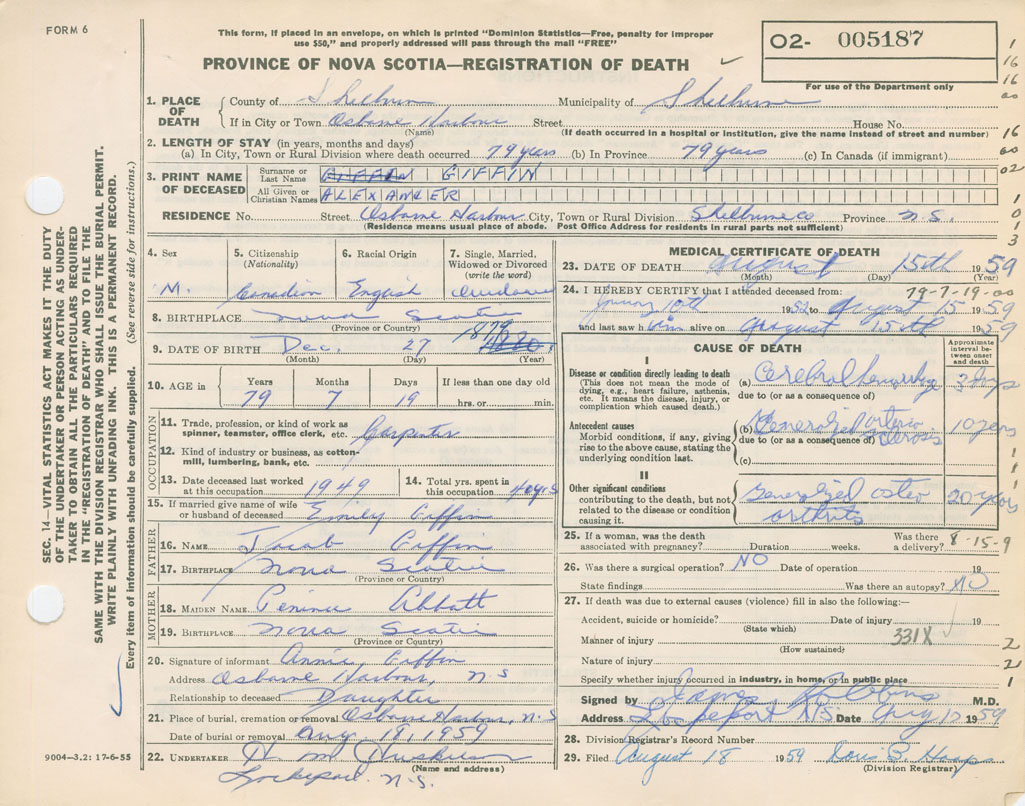 FORM 6
This form, if placed in an envelope, on which is printed "Dominion Statistics—Free, penalty for improper
use $50," and properly addressed will pass through the mail "FREE"
PROVINCE OF NOVA SCOTIA—REGISTRATION OF DEATH
02- 005187
For use of the Department only
1. PLACE OF DEATH
County of Shelburne Municipality of Shelburne
If in City or Town Osborne Harbour Street House No.
(Name) (If death occurred in a hospital or institution, give the name instead of street and number)
2. LENGTH OF STAY (in years, months and days)
(a) In City, Town or Rural Division where death occurred 79 years (b) In Province 79 years (c) In Canada (if immigrant)
3. PRINT NAME OF DECEASED
Surname or Last Name GIFFIN GIFFIN
All Given or Christian Names ALEXANDER
RESIDENCE No. Street Osborne Harbour City, Town or Rural Division Shelburne Co Province N.S.
(Residence means usual place of abode. Post Office Address for residents in rural parts not sufficient)
4. Sex M.
5. Citizenship (Nationality) Canadian
6. Racial Origin English
7. Single, Married, Widowed or Divorced (write the word)
8. BIRTHPLACE Nova Scotia
(Province or Country)
9. DATE OF BIRTH Dec. 27 1879
(Month) (Day) (Year)
10. AGE in Years Months Days If less than one day old
79 7 19 hrs. or min.
OCCUPATION
11. Trade, profession, or kind of work as spinner, teamster, office clerk, etc. Carpenter
12. Kind of industry or business, as cotton-mill, lumbering, bank, etc.
13. Date deceased last worked at this occupation 1949
14. Total yrs. spent in this occupation 40 yrs
15. If married give name of wife or husband of deceased Emily Giffin
FATHER
16. NAME Jacob Giffin
17. BIRTHPLACE Nova Scotia
(Province or Country)
MOTHER
18. MAIDEN NAME Abbott
19. BIRTHPLACE Nova Scotia
(Province or Country)
20. Signature of informant Annie Giffin
Address Osborne Harbour, N S
Relationship to deceased Daughter
21. Place of burial, cremation or removal Osborne Harbour, N.S
Date of burial or removal Aug 18, 1959
22. UNDERTAKER H M
(Name and address)
Lockeport, N.S.
MEDICAL CERTIFICATE OF DEATH
23. DATE OF DEATH August 15th 1959
(Month) (Day) (Year)
79-7-19-00
24. I HEREBY CERTIFY that I attended deceased from:
10th 1952 to August 15 1959
and last saw him alive on August 15th 1959
CAUSE OF DEATH
Approximate interval between onset and death
I
Disease or condition directly leading to death
(This does not mean the mode of dying, e.g., heart failure, asthenia, etc. It means the disease, injury, or complication which caused death.)
(a) Cerebral hemorrhage 3 days
due to (or as a consequence of)
Antecedent causes
Morbid conditions, if any, giving rise to the above cause, stating the underlying condition last.
(b) Generalized arterio sclerosis 10 years
due to (or as a consequence of)
(c)
II
Other significant conditions contributing to the death, but not related to the disease or condition causing it.
Generalized osteo arthritis 20 years
25. If a woman, was the death associated with pregnancy? Duration weeks. Was there a delivery?
8-15-9
26. Was there a surgical operation? NO Date of operation 19
State findings Was there an autopsy? NO
27. If death was due to external causes (violence) fill in also the following:—
Accident, suicide or homicide? Date of injury 19
(State which)
331X
Manner of injury
(How sustained)
Nature of injury
Specify whether injury occurred in industry, in home, or in public place
Signed by James M.D.
Address Lockeport NS Date Aug 17 1959
28. Division Registrar's Record Number
29. Filed August 18 1959
(Division Registrar)
SEC. 14—VITAL STATISTICS ACT MAKES IT THE DUTY
OF THE UNDERTAKER OR PERSON ACTING AS UNDER-
TAKER TO OBTAIN ALL THE PARTICULARS REQUIRED
IN THE "REGISTRATION OF DEATH" AND TO FILE THE
SAME WITH THE DIVISION REGISTRAR WHO SHALL ISSUE THE BURIAL PERMIT.
WRITE PLAINLY WITH UNFADING INK. THIS IS A PERMANENT RECORD.
Every item of information should be carefully supplied. (See reverse side for instructions.)
9004—3.2: 17-6-55
1
16
16
00
16
60
02
1
0
1
3
1
1
1
2
2
1